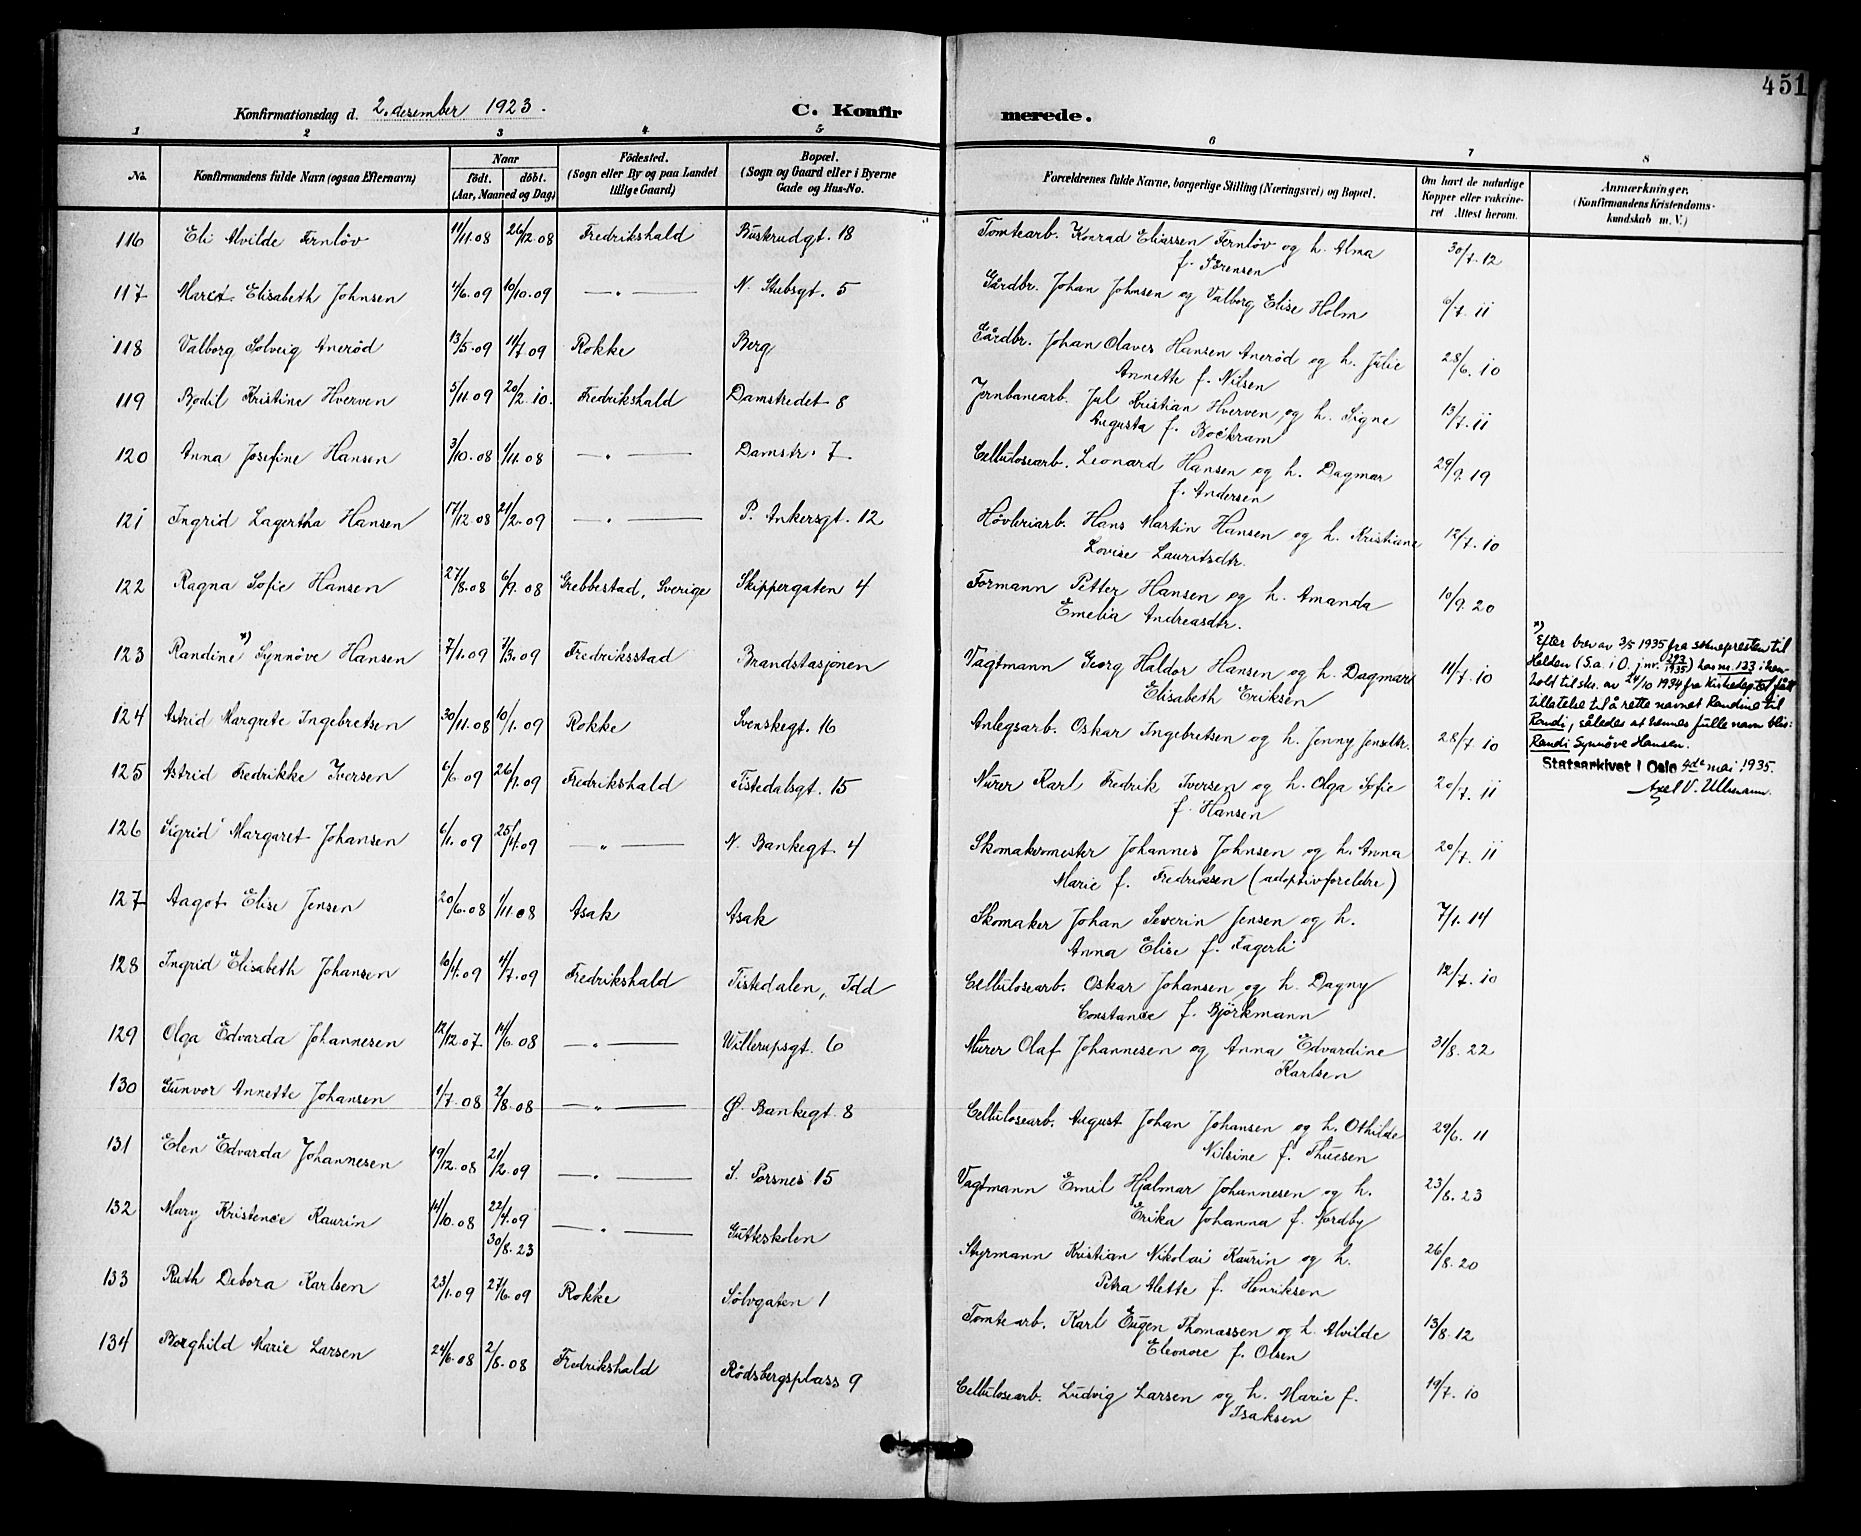 451
Konfirmationsdag d. 2. desember 1923.
C. Konfirmerede.
1 2 3 4 5 6 7 8
No.
Konfirmandens fulde Navn (ogsaa Efternavn)
Naar
født. døbt.
(Aar, Maaned og Dag)
Födested.
(Sogn eller By og paa Landet
tillige Gaard)
Bopæl.
(Sogn og Gaard eller i Byerne
Gade og Hus-No.
Forældrenes fulde Navne, borgerlige Stilling (Næringsvei) og Bopæl.
Om havt de naturlige
Kopper eller vakcine-
ret Attest herom.
Anmærkninger.
(Konfirmandens Kristendoms-
kundskab m. V.)
116 Eli Alvilde Fernløv 11/11.08 26/12.08 Fredrikshald Buskrudgt. 18 Tomtearb. Konrad Eliassen Fernløv og h. Alma 30/7.12
f. Sörensen
117 Margt. Elisabeth Johnsen 4/6.09 10/10.09 —"— N. Stubsgt. 5 Gårdbr. Johan Johnsen og Valborg Elise Holm 6/7.11
118 Valborg Solveig Anerød 13/5.09 11/7.09 Rokke Berg Gårdbr. Johan Olaves Hansen Anerød og h. Julie 28/6.10
Annette f. Nilsen
119 Bodil Kristine Hverven 5/11.09 20/2.10. Fredrikshald Damstredet 8 Jernbanearb. Jul Kristian Hverven og h. Signe 13/7.11
Augusta f. Bockram
120 Anna Josefine Hansen 3/10.08 1/11.08 —"— Damstr. 7 Cellulosearb. Leonard Hansen og h. Dagmar 29/9.19
f. Andersen
121 Ingrid Lagertha Hansen 17/12.08 21/2.09 —"— P. Ankersgt. 12 Høvleriarb. Hans Martin Hansen og h. Kristiane 12/7.10
Lovise Lauritsdtr.
122 Ragna Sofie Hansen 27/8.08 6/9.08 Grebbestad, Sverige Skippergaten 4 Formann Petter Hansen og h. Amanda 10/9.20
Emelia Andreasdtr.
123 Randine *) Synnöve Hansen 7/1.09 7/3.09 Fredriksstad Brandstasjonen Vagtmann Georg Haldor Hansen og h. Dagmar 11/7.10
Elisabeth Eriksen
*)
Efter brev av 3/5 1935 fra soknepresten til
Halden (S.a. i O. jnr. 292/1935) har nr. 123 i hen-
hold til skr. av 24/10 1934 fra Kirkedept. fått
tillatelse til å rette navnet Randine til
Randi, således at hennes fulle navn blir:
Randi Synnöve Hansen.
Statsarkivet i Oslo 4de mai 1935.
Axel V. Ullmann.
124 Astrid Margrete Ingebretsen 30/11.08 10/1.09 Rokke Svenskegt. 16 Anlegsarb. Oskar Ingebretsen og h. Jenny Jensdtr. 28/7.10
125 Astrid Fredrikke Iversen 6/6.09 26/1.09 Fredrikshald Tistedalsgt. 15 Murer Karl Fredrik Iversen og h. Olga Sofie 20/7.11
f. Hansen
126 Sigrid Margaret Johansen 6/1.09 25/4.09 —"— N. Bankegt. 4 Skomakermester Johannes Johnsen og h. Anna 20/7.11
Marie f. Fredriksen (adoptivforeldre)
127 Aagot Elise Jensen 20/6.08 1/11.08 Asak Asak Skomaker Johan Severin Jensen og h. 7/1.14
Anna Elise f. Fagerli
128 Ingrid Elisabeth Johansen 16/4.09 4/7.09 Fredrikshald Tistedalen, Idd Cellulosearb. Oskar Johansen og h. Dagny 12/7.10
Constance f. Björkmann
129 Olga Edvarda Johannesen 12/12.07 14/6.08 —"— Willerupsgt. 6 Murer Olaf Johannesen og Anna Edvardine 31/8.22
Karlsen
130 Gunvor Annette Johansen 1/7.08 2/8.08 —"— Ø. Bankegt. 8 Cellulosearb. August Johan Johansen og h. Othilde 29/6.11
Nilsine f. Thuesen
131 Elen Edvarda Johannesen 19/12.08 21/2.09 —"— S. Porsnes 15 Vagtmann Emil Hjalmar Johannesen og h. 23/8.23
Erika Johanna f. Nordby
132 Mary Kristence Kaurin 14/10.08 22/4.09 —"— Gutteskolen Styrmann Kristian Nikolai Kaurin og h. 26/8.20
30/8.23
Petra Mette f. Henriksen
133 Ruth Debora Karlsen 23/1.09 27/6.09 Rokke Sølvgaten 1 Tomtearb. Karl Eugen Thomassen og h. Alvilde 13/8.12
Eleonore f. Olsen
134 Borghild Marie Larsen 24/6.08 2/8.08 Fredrikshald Rødsbergsplass 9 Cellulosearb. Ludvig Larsen og h. Marie f. 19/7.10
Isaksen